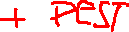 + PEST